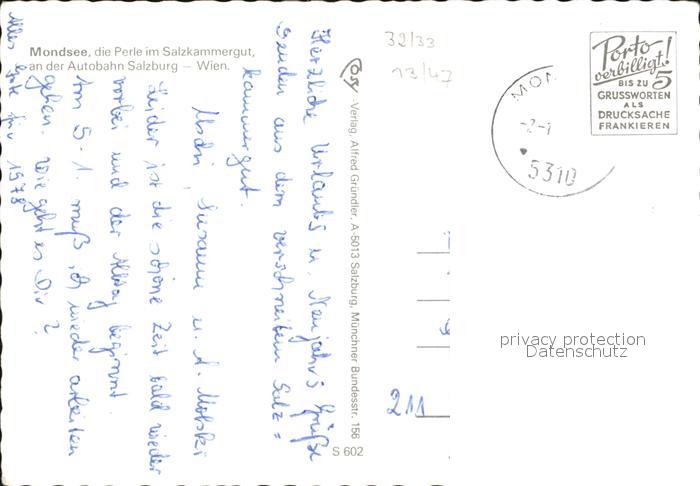 Mondsee, die Perle im Salzkammergut,
an der Autobahn Salzburg — Wien.
Herzliche Urlaubs u. Neujahrs Grüße
senden aus dem verschneiten Salz=
kammergut.
Uschi, Susanne u. A.
Leider ist die schöne Zeit bald wieder
vorbei und der Alltag beginnt.
Am 5. 1. muß ich wieder arbeiten
gehen. Wie geht es Dir?
Alles Gute für 1978
-Verlag, Alfred Gründler, A-5013 Salzburg, Münchner Bundesstr. 156
S 602
32/33
13/47
MON
-2-1
5310
Porto
verbilligt!
BIS ZU 5
GRUSSWORTEN
ALS
DRUCKSACHE
FRANKIEREN
privacy protection
Datenschutz
211